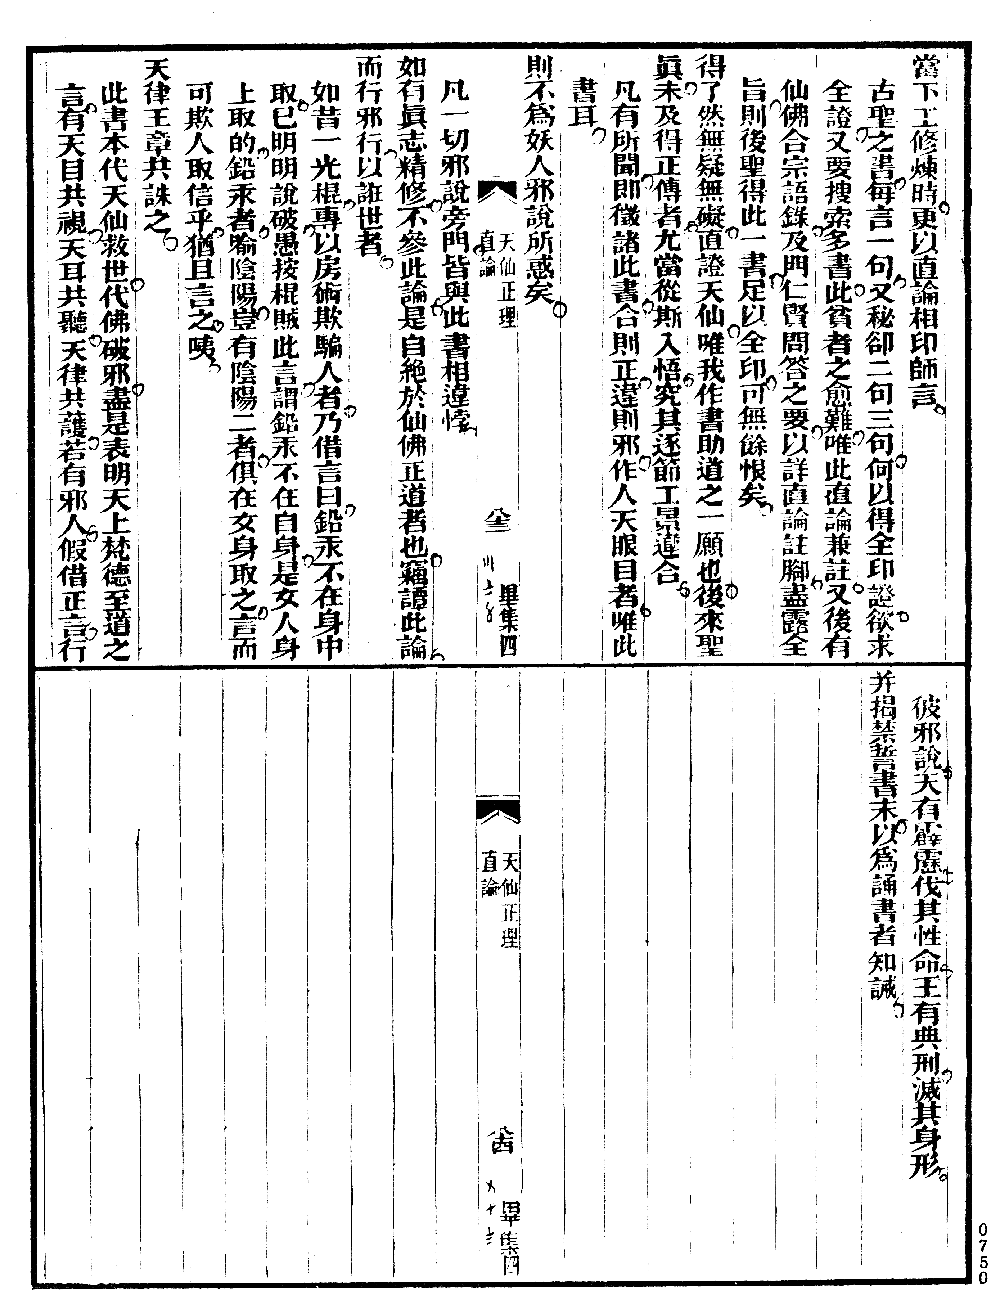 當下工修煉時更以直論相印師言
古聖之書每言一句又秘卻二句三句何以得全印證欲求
全證又要搜索多書此貧者之愈難唯此直論兼註又後有
仙佛合宗語錄及門仁賢問答之要以詳直論註腳盡露全
旨則後聖得此一書足以全印可無餘恨矣
得了然無疑無礙直證天仙唯我作書助道之一願也後來聖
眞未及得正傳者尤當從斯入悟究其逐節工景違合
凡有所聞即徵諸此書合則正違則邪作人天眼目者唯此
書耳
則不爲妖人邪說所惑矣
天仙正理
直論
畢集四
凡一切邪說旁門皆與此書相違悖
如有眞志精修不參此論是自絶於仙佛正道者也竊謂此論
而行邪行以誑世者
如昔一光棍專以房術欺騙人者乃借言曰鉛汞不在身中
取已明明說破愚按棍賊此言謂鉛汞不在自身是女人身
上取的鉛汞者喻陰陽豈有陰陽二者俱在女身取之言而
可欺人取信乎猶且言之咦
天律王章共誅之
此書本代天仙救世代佛破邪盡是表明天上梵德至道之
言有天目共視天耳共聽天律共護若有邪人假借正言行
彼邪說天有霹靂伐其性命王有典刑滅其身形
并揭禁誓書末以爲誦書者知誡
天仙正理
直論
畢集四
0750